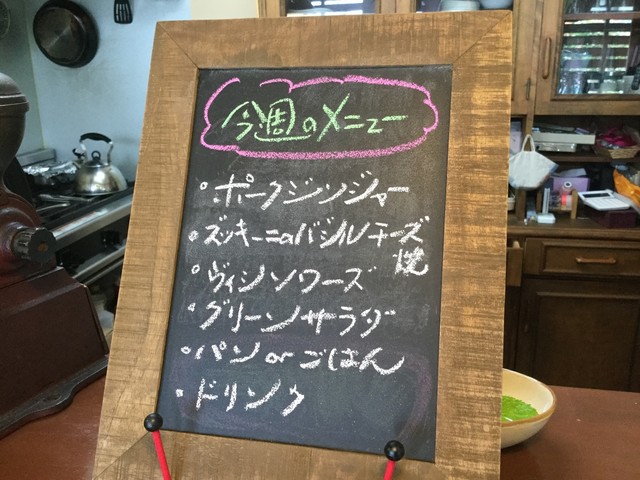 今週のメニュー
・ポークジンジャー
・ズッキーニのバジルチーズ
焼
・ヴィシソワーズ
・グリーンサラダ
・パン or ごはん
・ドリンク